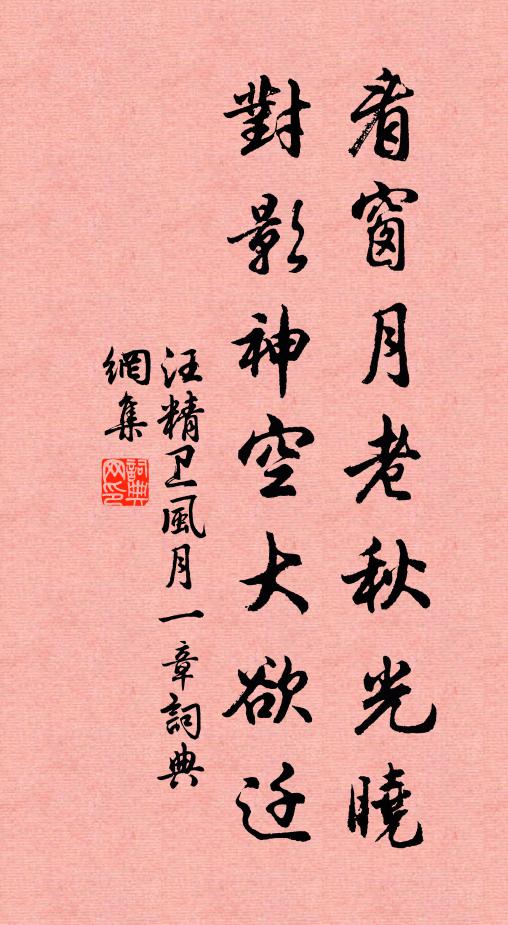 看窗月老秋光曉
對影神空大欲迁
汪精卫風月一章詞典
網集
詞典网印